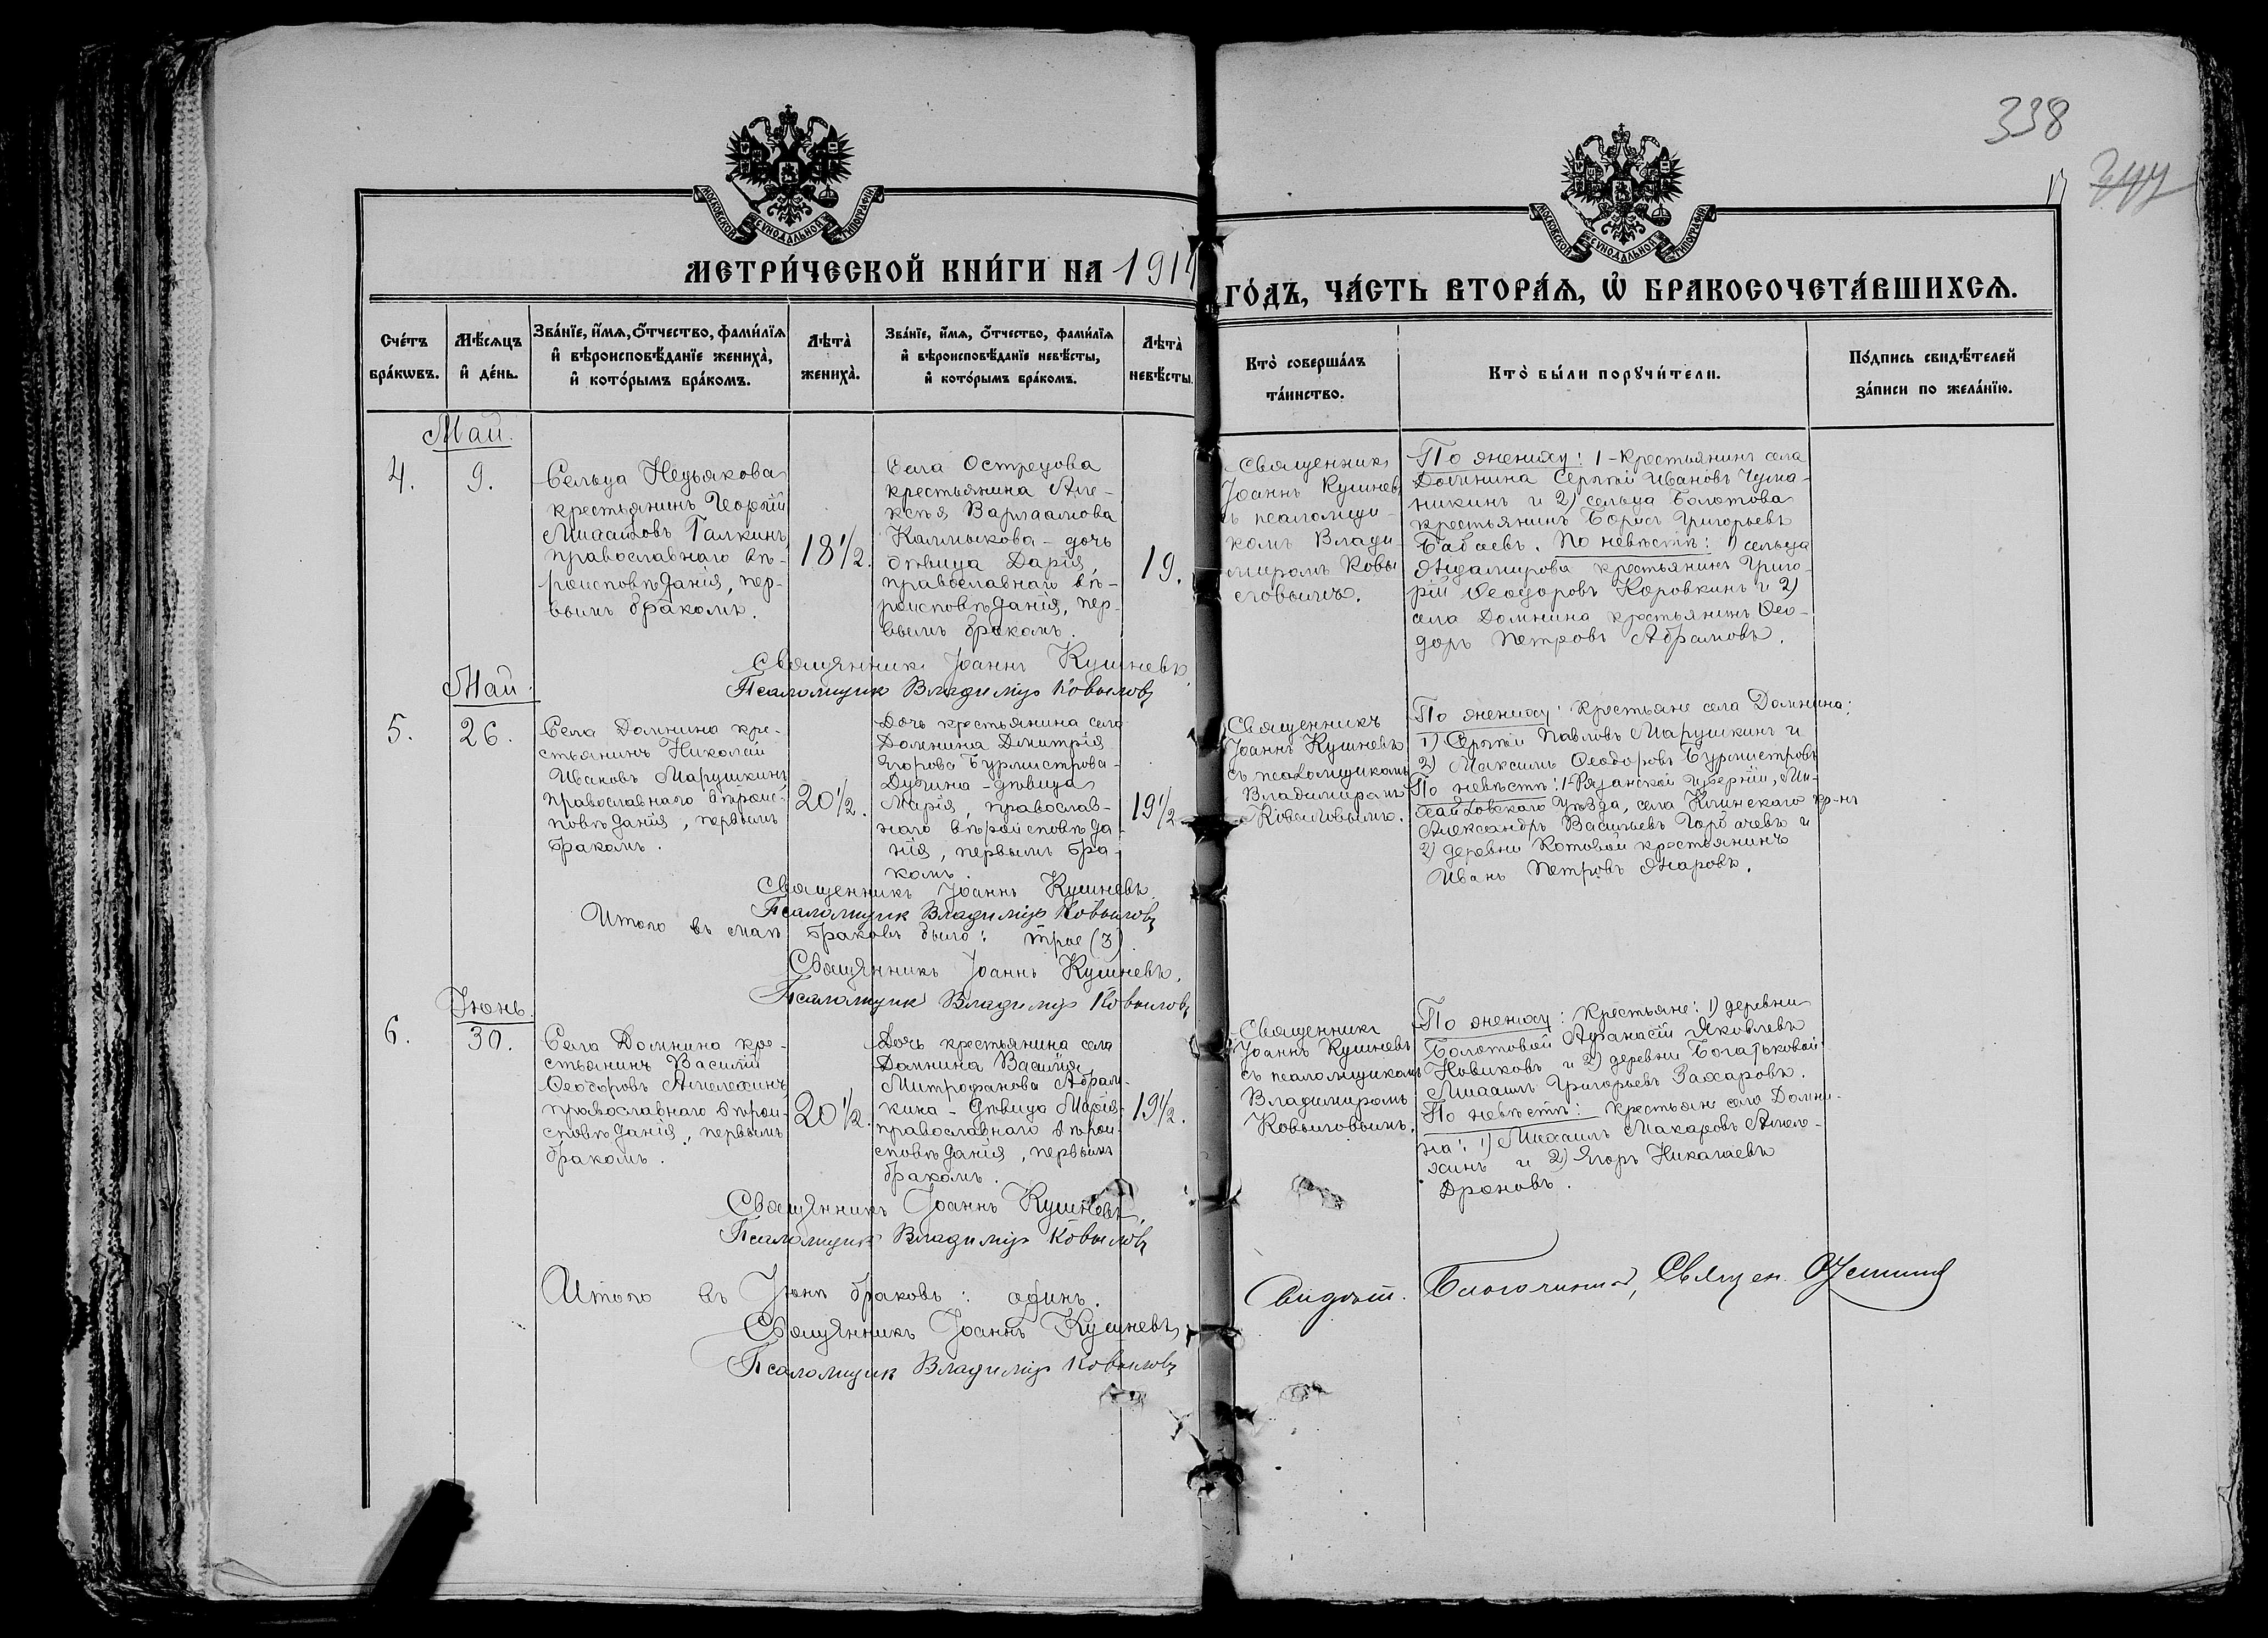 338
МОСКОВСКОЙ СѴНОДАЛЬНОЙ ТИПОГРАФІИ
МОСКОВСКОЙ СѴНОДАЛЬНОЙ ТИПОГРАФІИ
МЕТРИ́ЧЕСКОЙ КНИ́ГИ НА 1914
ГО́ДЪ, ЧА́СТЬ ВТОРА́Ѧ, Ѽ БРАКОСОЧЕТА́ВШИХСѦ.
Сче́тъ бра́кѡвъ.
Мѣ́сѧцъ и҆ де́нь.
Зва́нїе, и҆́мѧ, ѻ҆́тчество, фами́лїѧ
и҆ вѣроисповѣ́данїе жениха̀,
и҆ кото́рымъ бра́комъ.
Лѣта̀ жениха̀.
Зва́нїе, и҆́мѧ, ѻ҆́тчество, фами́лїѧ
и҆ вѣроисповѣ́данїе невѣ́сты,
и҆ кото́рымъ бра́комъ.
Лѣта̀ невѣ́сты.
Кто̀ соверша́лъ
та́инство.
Кто̀ бы́ли порꙋчи́тели.
По́дпись свидѣ́телей
за́писи по жела́нїю.
Май.
4.
9.
Сельца Недьякова
крестьянинъ Георгій
Михаиловъ Галкинъ,
православнаго вѣ-
роисповѣданія, пер-
вымъ бракомъ.
18½.
Села Острецова
крестьянина Але-
ксѣя Варлаамова
Калмыкова - дочь
дѣвица Дарія,
православнаго вѣ-
роисповѣданія, пер-
вымъ бракомъ.
19.
Священникъ
Іоаннъ Кушневъ
съ псаломщи-
комъ Влади-
миромъ Ковы
ловымъ.
По жениху: 1 - крестьянинъ села
Домнина Сергѣй Ивановъ Чума-
никинъ и 2) сельца Болотова
крестьянинъ Борисъ Григорьевъ
Бабаевъ. По невѣстѣ: 1) сельца
крестьянинъ Григо-
рій Ѳеодоровъ Коровкинъ и 2)
села Домнина крестьянинъ Ѳео-
доръ Петровъ Абрамовъ.
Священникъ Іоаннъ Кушневъ.
Псаломщик Владимір Ковыловъ
Май.
5.
26.
Села Домнина кре-
стьянинъ Николай
Ивановъ Марушкинъ,
православнаго вѣроис-
повѣданія, первымъ
бракомъ.
20½.
Дочь крестьянина села
Домнина Дмитрія
Егорова Бурмистрова-
Дугина - дѣвица
Марія, православ-
наго вѣроисповѣда-
нія, первымъ бра-
комъ.
19½
Священникъ
Іоаннъ Кушневъ
съ псаломщикомъ
Владимиромъ
Ковыловымъ.
По жениху: крестьяне села Домнина:
1) Сергѣй Павловъ Марушкинъ и
2) Максимъ Ѳеодоровъ Бурмистровъ
По невѣстѣ: 1 - Рязанской губерніи, Ми-
хайловскаго Уѣзда, села Клинскаго кр-нъ
Александръ Васильевъ Горбачевъ и
2) деревни Котовой крестьянинъ
Иванъ Петровъ Жаровъ.
Священникъ Іоаннъ Кушневъ.
Псаломщик Владимір Ковыловъ
Итого въ маѣ браковъ было: трое (3)
Священникъ Іоаннъ Кушневъ.
Псаломщик Владимір Ковыловъ
Іюнь.
6.
30.
Села Домнина кре-
стьянинъ Василій
Ѳеодоровъ Амелехинъ,
православнаго вѣрои-
сповѣданія, первымъ
бракомъ.
20½.
Дочь крестьянина села
Домнина Василія
Митрофанова Абрам-
кина - дѣвица Марія
православнаго вѣрои-
сповѣданія, первымъ
бракомъ.
19½.
Священникъ
Іоаннъ Кушневъ
съ псаломщикомъ
Владимиромъ
Ковыловымъ.
По жениху: крестьяне: 1) деревни
Болотовой Аѳанасій Яковлевъ
Новиковъ и 2) деревни Богатьковой
Михаилъ Григорьевъ Захаровъ.
По невѣстѣ: крестьяне села Домни-
на: 1) Михаилъ Макаровъ Амеле-
хинъ и 2) Егоръ Николаевъ
Дроновъ.
Священникъ Іоаннъ Кушневъ.
Псаломщик Владимір Ковыловъ
Итого въ Іюнѣ браковъ: одинъ.
Священникъ Іоаннъ Кушневъ
Псаломщик Владимір Ковыловъ
Благочинный, Священ.